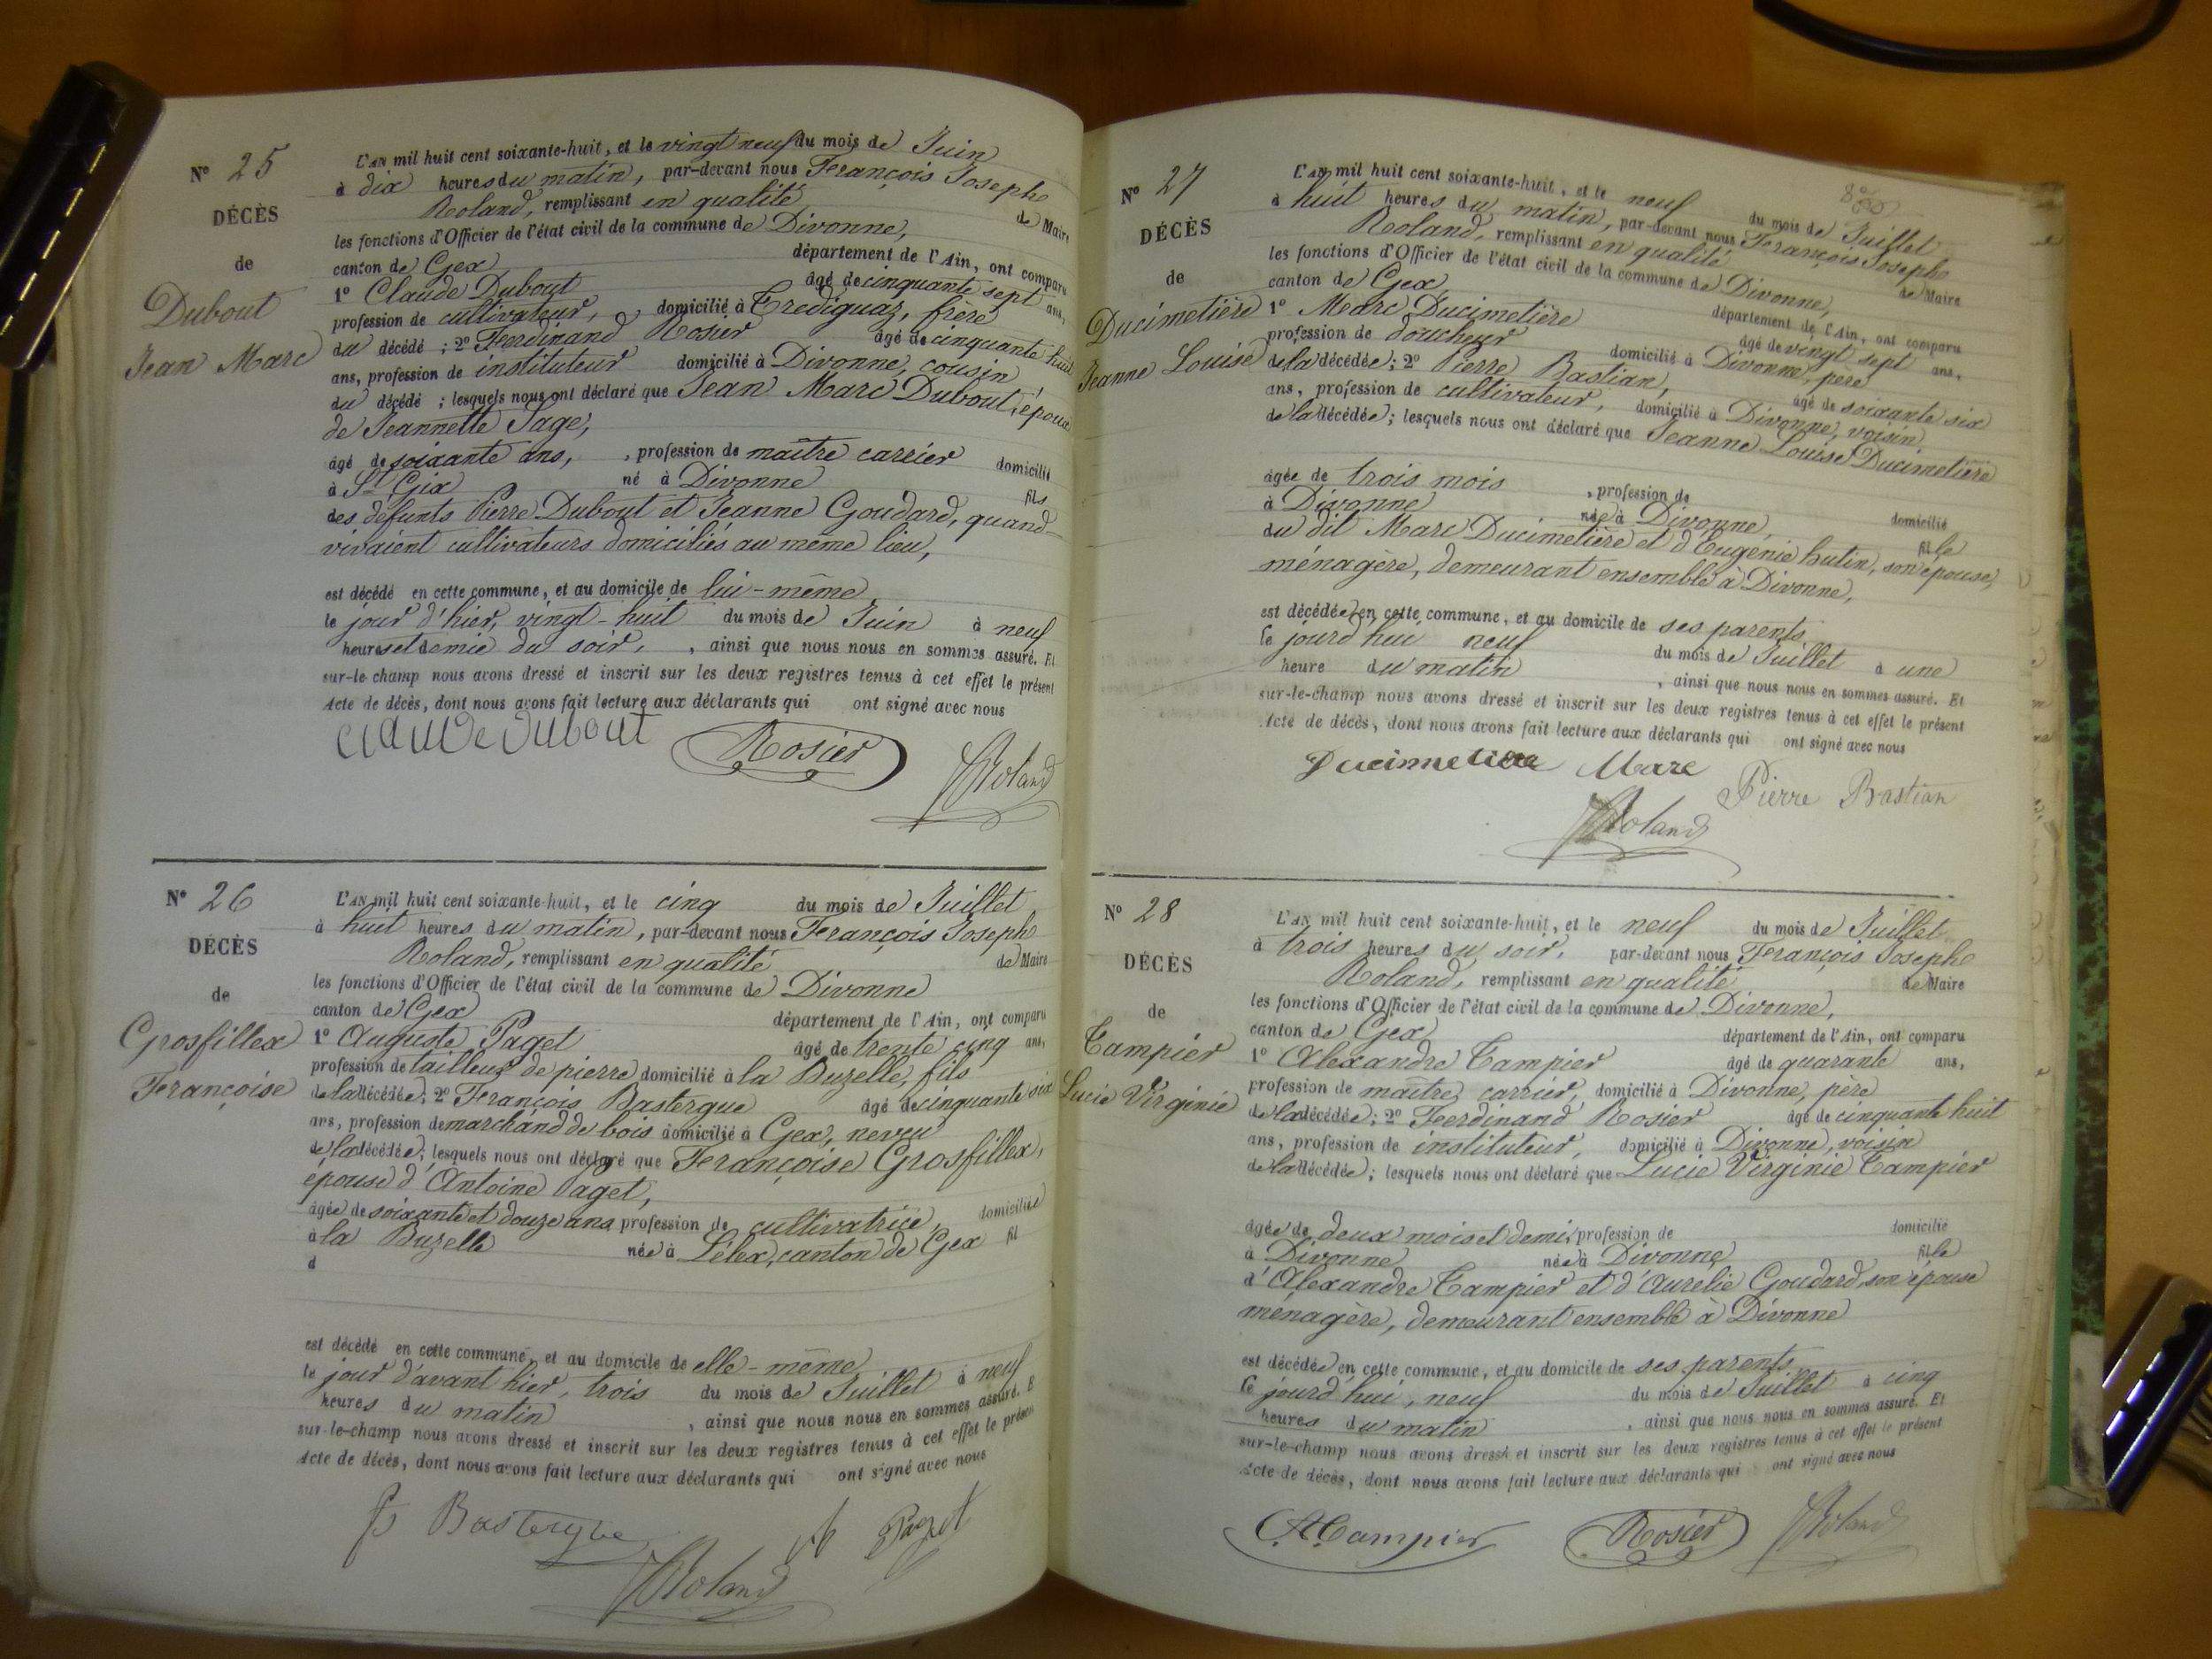 N° 25
DÉCÈS
de
Dubout
Jean Marc
L'AN mil huit cent soixante-huit, et le vingt neuf du mois de Juin
à dix heures du matin, par-devant nous François Joseph
Roland, remplissant en qualité de Maire
les fonctions d'Officier de l'état civil de la commune de Divonne,
canton de Gex département de l'Ain, ont comparu
1° Claude Dubout âgé de cinquante sept ans,
profession de cultivateur, domicilié à Crediguaz, frère
du décédé ; 2° Ferdinand Rosier âgé de cinquante huit
ans, profession de instituteur domicilié à Divonne, cousin
du décédé ; lesquels nous ont déclaré que Jean Marc Dubout, époux
de Jeannette Sage,
âgé de soixante ans, , profession de maître carrier domicilié
à St Gix né à Divonne fils
des défunts Pierre Dubout et Jeanne Goudard, quand
vivaient cultivateurs domiciliés au même lieu,
est décédé en cette commune, et au domicile de lui-même
le jour d'hier, vingt-huit du mois de Juin à neuf
heures et demie du soir, , ainsi que nous nous en sommes assuré. Et
sur-le-champ nous avons dressé et inscrit sur les deux registres tenus à cet effet le présent
Acte de décès, dont nous avons fait lecture aux déclarants qui ont signé avec nous
claude dubout Rosier
Roland
N° 26
DÉCÈS
de
Grosfillex
Françoise
L'AN mil huit cent soixante-huit, et le cinq du mois de Juillet
à huit heures du matin, par-devant nous François Joseph
Roland, remplissant en qualité de Maire
les fonctions d'Officier de l'état civil de la commune de Divonne
canton de Gex département de l'Ain, ont comparu
1° Auguste Paget âgé de trente cinq ans,
profession de tailleur de pierre domicilié à la Buzelle, fils
de la décédée ; 2° François Bastergue âgé de cinquante six
ans, profession de marchand de bois domicilié à Gex, neveu
de la décédée ; lesquels nous ont déclaré que Françoise Grosfillex,
épouse d'Antoine Paget,
âgée de soixante et douze ans profession de cultivatrice, domiciliée
à la Buzelle née à Lélex, canton de Gex fil
d
est décédé en cette commune, et au domicile de elle-même
le jour d'avant hier, trois du mois de Juillet à neuf
heures du matin , ainsi que nous nous en sommes assuré. E
sur-le-champ nous avons dressé et inscrit sur les deux registres tenus à cet effet le présen
Acte de décès, dont nous avons fait lecture aux déclarants qui ont signé avec nous
f Bastergue A Paget
Roland
N° 27
DÉCÈS
de
Ducimetière
Jeanne Louise
L'AN mil huit cent soixante-huit, et le neuf du mois de Juillet
à huit heures du matin, par-devant nous François Joseph
Roland, remplissant en qualité de Maire
les fonctions d'Officier de l'état civil de la commune de Divonne,
canton de Gex département de l'Ain, ont comparu
1° Marc Ducimetière âgé de vingt sept ans,
profession de doucheur domicilié à Divonne, père
de la décédée ; 2° Pierre Bastian, âgé de soixante six
ans, profession de cultivateur, domicilié à Divonne, voisin
de la décédée ; lesquels nous ont déclaré que Jeanne Louise Ducimetière
âgée de trois mois , profession de domicilié
à Divonne née à Divonne, fille
du dit Marc Ducimetière et d'Eugénie hutin, son épouse,
ménagère, demeurant ensemble à Divonne,
est décédée en cette commune, et au domicile de ses parents,
le jourd'hui neuf du mois de Juillet à une
heure du matin , ainsi que nous nous en sommes assuré. Et
sur-le-champ nous avons dressé et inscrit sur les deux registres tenus à cet effet le présent
Acte de décès, dont nous avons fait lecture aux déclarants qui ont signé avec nous
Ducimetière Marc Pierre Bastian
Roland
N° 28
DÉCÈS
de
Tampier
Lucie Virginie
L'AN mil huit cent soixante-huit, et le neuf du mois de Juillet
à trois heures du soir, par-devant nous François Joseph
Roland, remplissant en qualité de Maire
les fonctions d'Officier de l'état civil de la commune de Divonne,
canton de Gex département de l'Ain, ont comparu
1° Alexandre Tampier âgé de quarante ans,
profession de maître carrier, domicilié à Divonne, père
de la décédée ; 2° Ferdinand Rosier âgé de cinquante huit
ans, profession de instituteur, domicilié à Divonne, voisin
de la décédée ; lesquels nous ont déclaré que Lucie Virginie Tampier
âgée de deux mois et demi, profession de domicilié
à Divonne née à Divonne fille
d'Alexandre Tampier et d'Aurelie Goudard son épouse
ménagère, demeurant ensemble à Divonne
est décédée en cette commune, et au domicile de ses parents
le jourd'hui, neuf du mois de Juillet à cinq
heures du matin , ainsi que nous nous en sommes assuré. Et
sur-le-champ nous avons dressé et inscrit sur les deux registres tenus à cet effet le présent
Acte de décès, dont nous avons fait lecture aux déclarants qui ont signé avec nous
A Tampier Rosier Roland